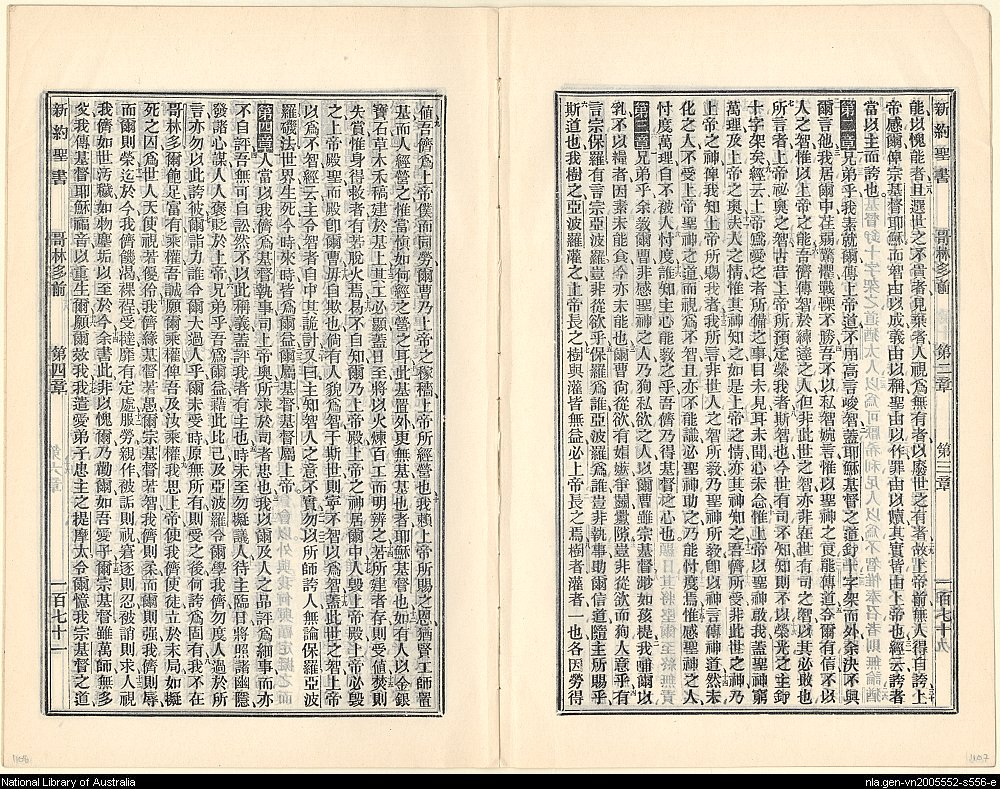 新約聖書 哥林多前 第三章
能以愧能者且選世之不貴者見棄者人視爲無有者以廢世之有者故上帝前無人得自誇上
帝感爾俾宗基督耶穌而智由以成義由以稱聖由以作罪由以贖其實皆由上帝也經云誇者
當以主而誇也
第二章兄弟乎我素就爾傳上帝道不用高言峻智蓋耶穌基督之道釘十字架而外余決不與
爾言他我居爾中在荏弱驚懼戰慄不勝吾不以私智婉言惟以聖神之可能傳道令爾有信不以
人之智惟以上帝之能吾儕傳智於練達之人但非此世之智亦非在世有司之智以其必敗也
所言者上帝祕奧之智古昔上帝所預定榮我者斯智也今世有司不知知則不以榮光之主釘
十字架矣經云上帝爲愛之者所備之事目未見耳未聞心未念惟上帝以聖神啟我蓋聖神窮
萬理及上帝之奧夫人之情惟其神知之如是上帝之情亦其神知之吾儕所受非此世之神乃
上帝之神俾我知上帝所賜我者我所言非世人之智所敎乃聖神所敎卽以神言傳神道然未
化之人不受上帝聖神之道而視爲不智且亦不能識必聖神助之乃能忖度焉惟感聖神之人
忖度萬理自不被人忖度誰知主心能敎之乎吾儕乃得基督之心也
第三章兄弟乎余敎爾曹非感聖神之人乃狥私欲之人以爾曹雖宗基督渺如孩提我哺爾以
乳不以糧者因素未能食今亦未能也爾曹尙從欲有娼嫉爭鬬釁隙豈非從欲而狥人意乎有
言宗保羅有言宗亞波羅豈非從欲乎保羅爲誰亞波羅爲誰豈非執事助爾信道隨主所賜乎
斯道也我樹之亞波羅灌之上帝長之樹與灌皆無益必上帝長之焉樹者灌者一也各因勞得
値吾儕爲上帝僕而同勞爾曹乃上帝之稼穡上帝所經營也我賴上帝所賜之恩猶賢工師置
基而人經營之惟當愼如何經之營之耳此基置外更無基基也者耶穌基督也如有人以金銀
寶石草木禾稿建於基上其工必顯蓋日至將以火煉百工而明辨之若所建者存則受値焚則
失賞惟身得救者有若脫火焉易不自知爾乃上帝殿上帝之神居爾中人毀上帝殿上帝必毀
之上帝殿聖而殿卽爾曹毋自欺也倘有人貌爲智于斯世則寧不智以爲智蓋此世之智上帝
以爲不智經云主令智者自中其詭計又曰主知智人之意不實勿以所師誇人無論保羅亞波
羅磯法世界生死今時來時皆爲爾益爾屬基督基督屬上帝
第四章人當以我儕爲基督執事司上帝奧所求於司者忠也我以爾及人之品評爲細事而亦
不自評吾無可自訟然不以此稱義蓋評我者有主也時未至勿擬議人待主臨日將照諸幽隱
發諸心謀人人褒貶於上帝兄弟乎吾爲爾益藉此比己及亞波羅令爾學我儕勿度人過於所
言亦勿以此誇彼張己詘力誰令爾大過人乎爾未受時原無所有則受之後何誇爲固有我不在
哥林多爾飽足富有乘權吾誠願爾乘權俾吾及汝乘權我思上帝使我儕使徒立於末局如擬
死之囚爲世人天使視若優伶我儕緣基督若愚爾宗基督若智我儕則柔而爾則強我儕則辱
而爾則榮迄於今我儕饑渴裸裎受撻靡有定處服勞親作被詬則祝窘逐則忍被誚則求人視
我儕如世汚穢如物塵垢以至於今余書此非以愧爾乃勸爾如吾愛子爾宗基督雖萬師無多
父我傳基督耶穌福音以重生爾願爾效我我遣愛弟子忠主之提摩太令爾憶我宗基督之道
新約聖書 哥林多前 第四章
National Library of Australia
nla.gen-vn2005552-s556-e